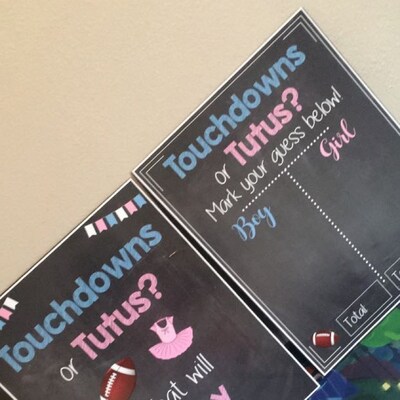 Touchdowns
or Tutus?
Mark your guess below!
Boy
Girl
Total
Touchdowns
or Tutus?
will